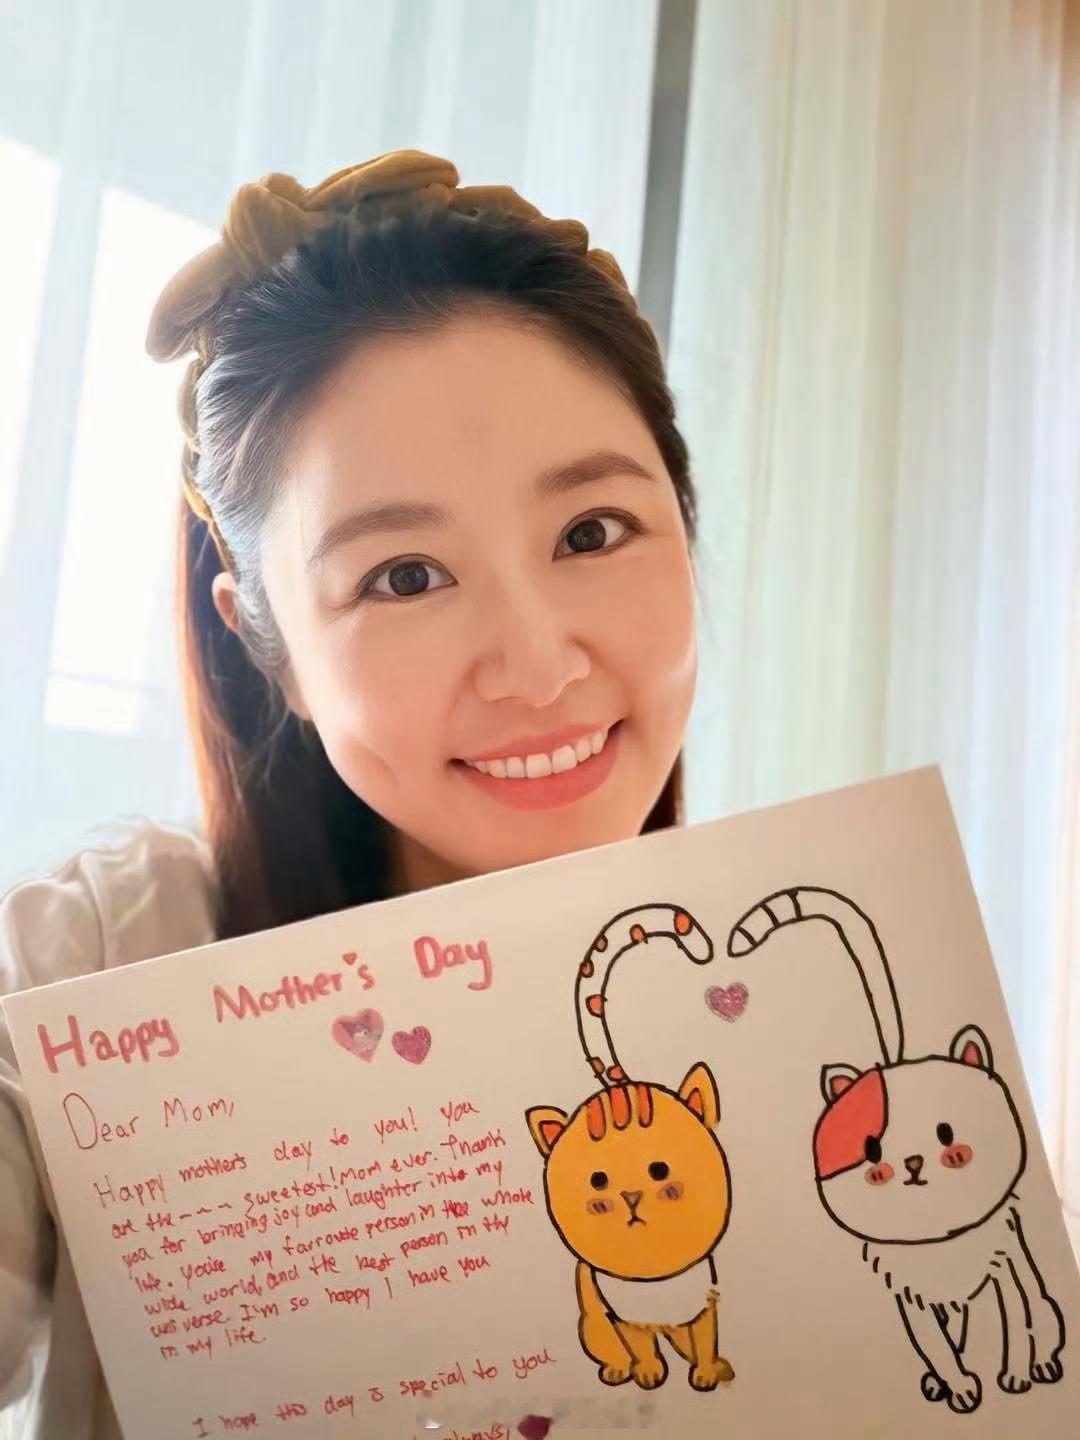 Happy Mother's Day
Dear Mom,
Happy mothers day to you! You
are the ~ ~ ~ sweetest! Mom ever. Thank
you for bringing joy and laughter into my
life. You're my farroute person in the whole
wide world, and the best person in thy
universe. I'm so happy I have you
in my life.
I hope this day is special to you
always,